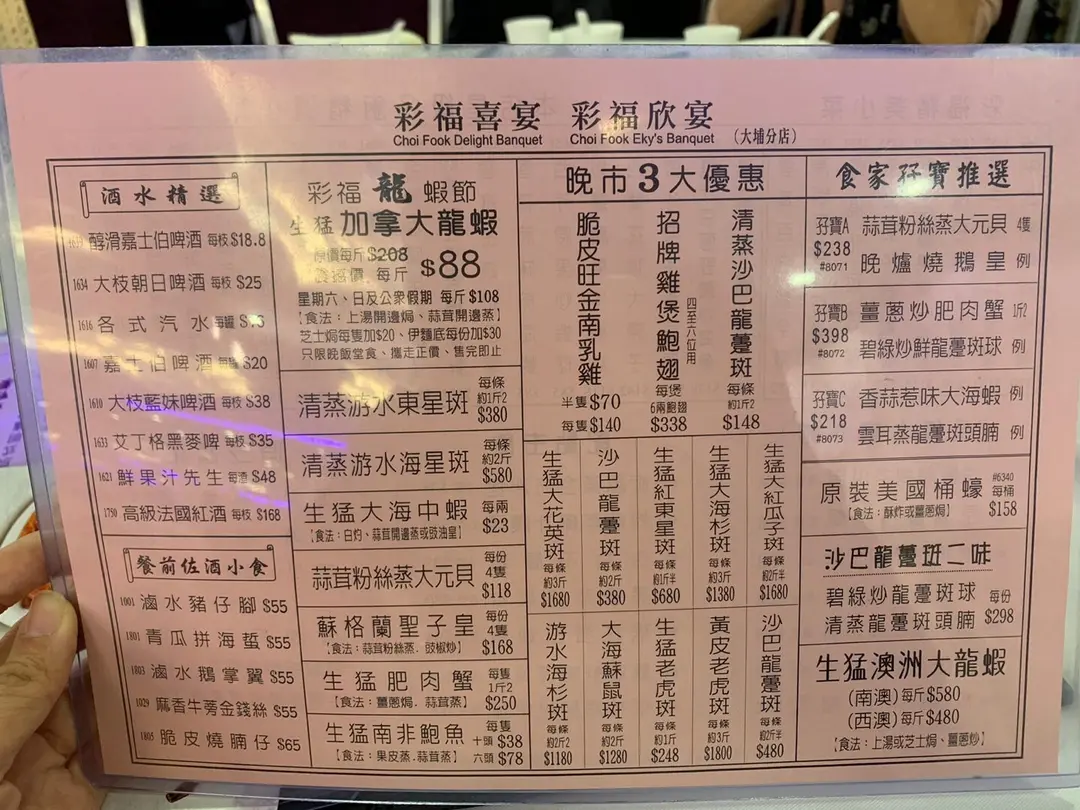 彩福喜宴 彩福欣宴
Choi Fook Delight Banquet Choi Fook Eky's Banquet (大埔分店)
酒水精選
醇滑嘉士伯啤酒 每枝 $18.8
1634 大枝朝日啤酒 每枝 $25
1616 各式汽水 每罐
1607 嘉士伯啤酒 $20
1610 大枝藍妹啤酒 每枝 $38
1633 艾丁格黑麥啤 每枝 $35
1621 鮮果汁先生 每渣 $48
1750 高級法國紅酒 每枝 $168
餐前佐酒小食
1001 滷水豬仔腳 $55
1801 青瓜拼海蜇 $55
1803 滷水鵝掌翼 $55
1029 麻香牛蒡金錢絲 $55
1805 脆皮燒腩仔 $65
彩福龍蝦節
生猛加拿大龍蝦
原價每斤 $208
震撼價 每斤 $88
星期六、日及公眾假期 每斤 $108
【食法：上湯開邊焗、蒜茸開邊蒸】
芝士焗每隻加$20、伊麵底每份加$30
只限晚飯堂食、攜走正價、售完即止
清蒸游水東星斑 每條 約1斤2 $380
清蒸游水海星斑 每條 約2斤 $580
生猛大海中蝦 每兩 $23
【食法：白灼、蒜茸開邊蒸或豉油皇】
蒜茸粉絲蒸大元貝 每份 4隻 $118
蘇格蘭聖子皇 每份 4隻 $168
【食法：蒜茸粉絲蒸．豉椒炒】
生猛肥肉蟹 每隻 1斤2 $250
【食法：薑蔥焗．蒜茸蒸】
生猛南非鮑魚 每隻 十頭 $38 六頭 $78
【食法：果皮蒸.蒜茸蒸】
晚市3大優惠
脆皮旺金南乳雞 半隻 $70 每隻 $140
招牌雞煲鮑翅 四至六位用 每煲 6兩鮑翅 $338
清蒸沙巴龍躉斑 每條 約1斤2 $148
生猛大花英斑 每條 約3斤 $1680
沙巴龍躉斑 每條 約2斤 $380
生猛紅東星斑 每條 約1斤半 $680
生猛大海杉斑 每條 約3斤 $1380
生猛大紅瓜子斑 每條 約2斤半 $1680
游水海杉斑 每條 約2斤2 $1180
大海蘇鼠斑 每條 約2斤 $1280
生猛老虎斑 每條 約1斤 $248
黃皮老虎斑 每條 約3斤 $1800
沙巴龍躉斑 每條 約2斤半 $480
食家孖寶推選
孖寶A $238 #8071
蒜茸粉絲蒸大元貝 4隻
晚爐燒鵝皇 例
孖寶B $398 #8072
薑蔥炒肥肉蟹 1斤2
碧綠炒鮮龍躉斑球 例
孖寶C $218 #8073
香蒜惹味大海蝦 例
雲耳蒸龍躉斑頭腩 例
原裝美國桶蠔 #6340 每桶 $158
【食法：酥炸或薑蔥焗】
沙巴龍躉斑二味
碧綠炒龍躉斑球 每份
清蒸龍躉斑頭腩 $298
生猛澳洲大龍蝦
(南澳) 每斤 $580
(西澳) 每斤 $480
【食法：上湯或芝士焗、薑蔥炒】